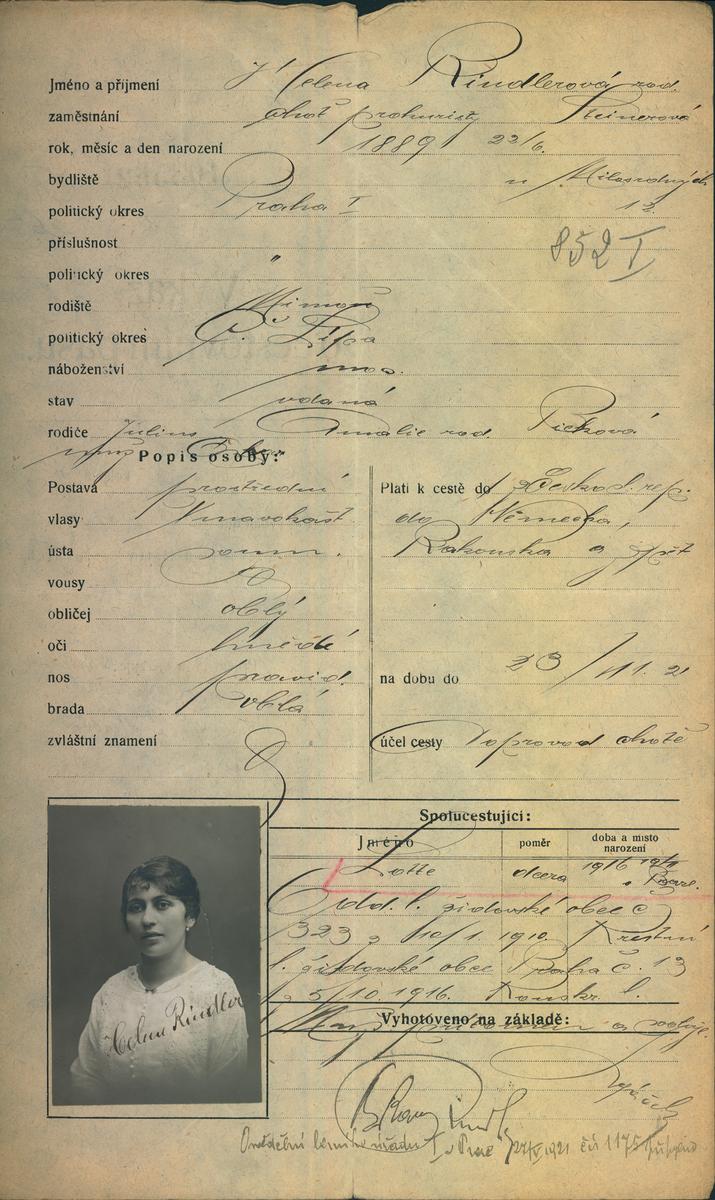 Jméno a příjmení Helena Rindlerová rod.
zaměstnání choť prokuristy Steinerová
rok, měsíc a den narození 1889 22/6.
bydliště u Milosrdných
politický okres Praha I 12.
příslušnost 852 I
politický okres "
rodiště Mimoň
politický okres Č. Lípa
náboženství mos.
stav vdaná
rodiče Julius Amalie rod. Picková
Popis osoby:
Postava prostřední
vlasy tmavokašt
ústa soum.
vousy
obličej oblý
oči hnědé
nos pravid.
brada oblá
zvláštní znamení
Platí k cestě do Českosl. rep.
do Německa,
Rakouska a zpět
na dobu do 23/11. 21
účel cesty doprovod chotě
Spolucestující:
Jméno poměr doba a místo narození
Lotte dcera 1916
Odd. l. židovské obce č
323 z 10/1. 1910. Křestní
l. židovské obce Praha č. 13
z 5/10. 1916. Konskr. l.
Vyhotoveno na základě:
Helena Rindler
1921 čís 1175